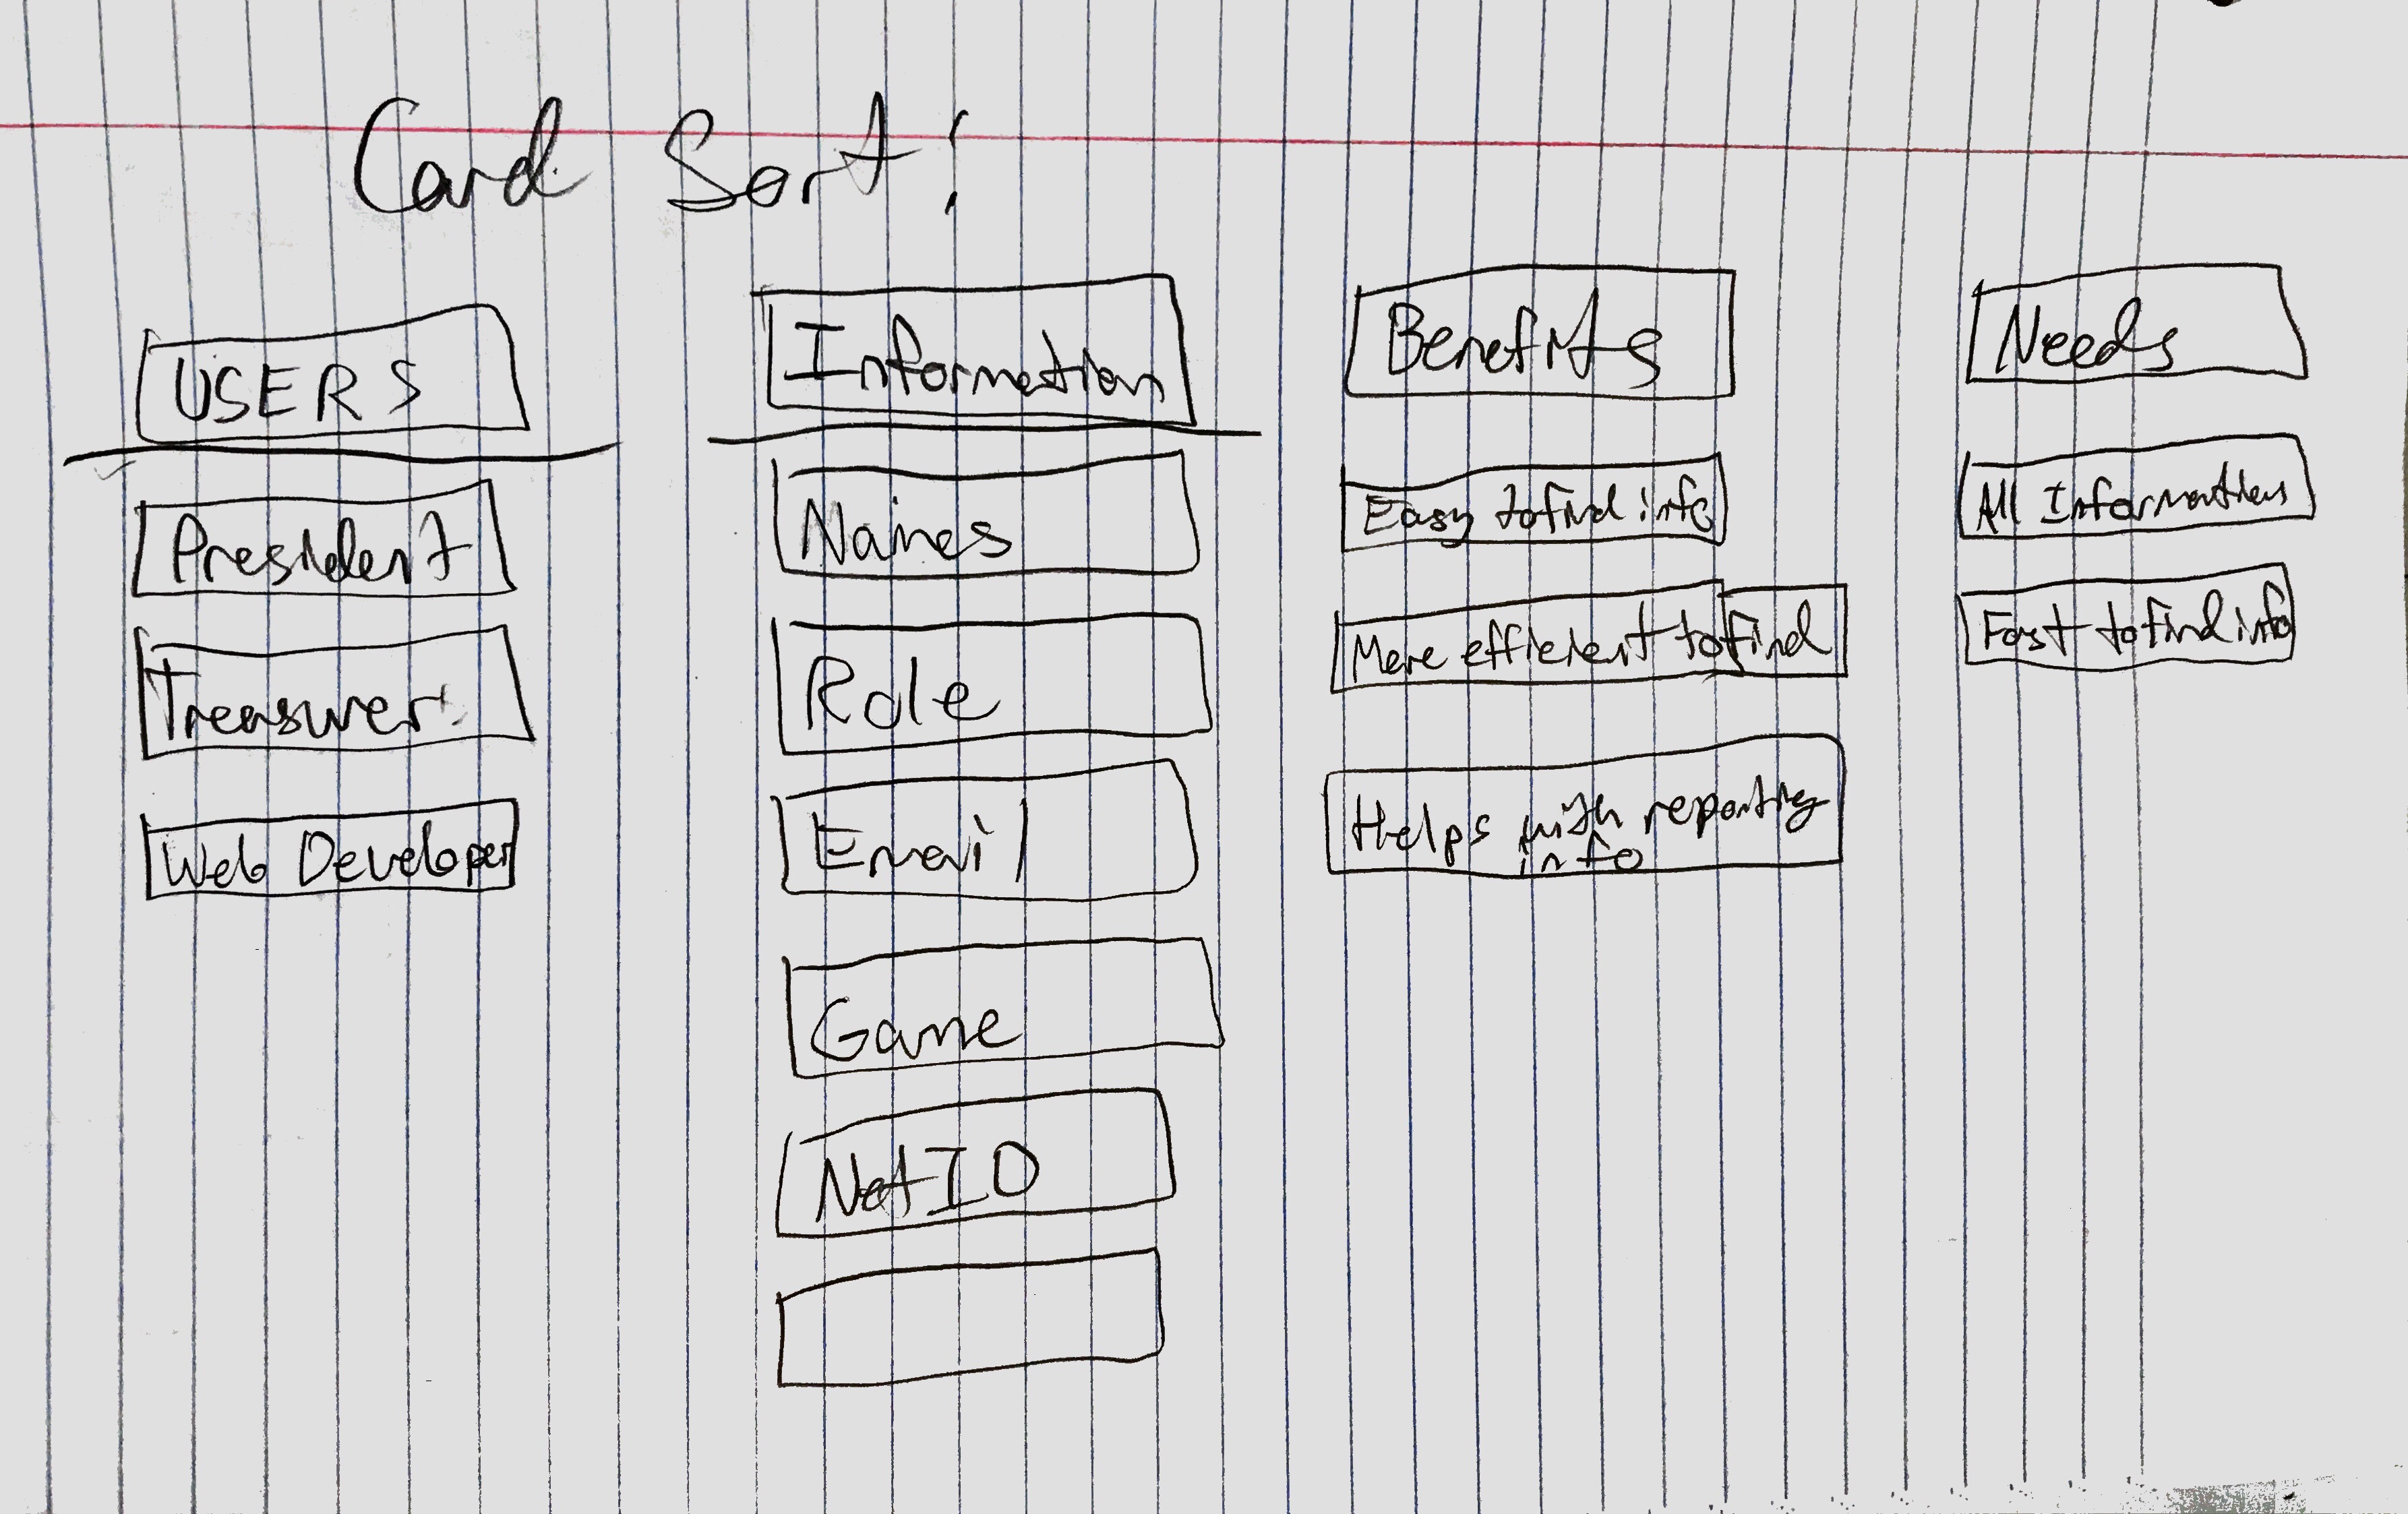 Card Sort:
USERS
President
Treasurer
Web Developer
Information
Names
Role
Email
Game
NetID
Benefits
Easy to find info
More efficient to find
Helps with reporting
info
Needs
All Information
Fast to find info